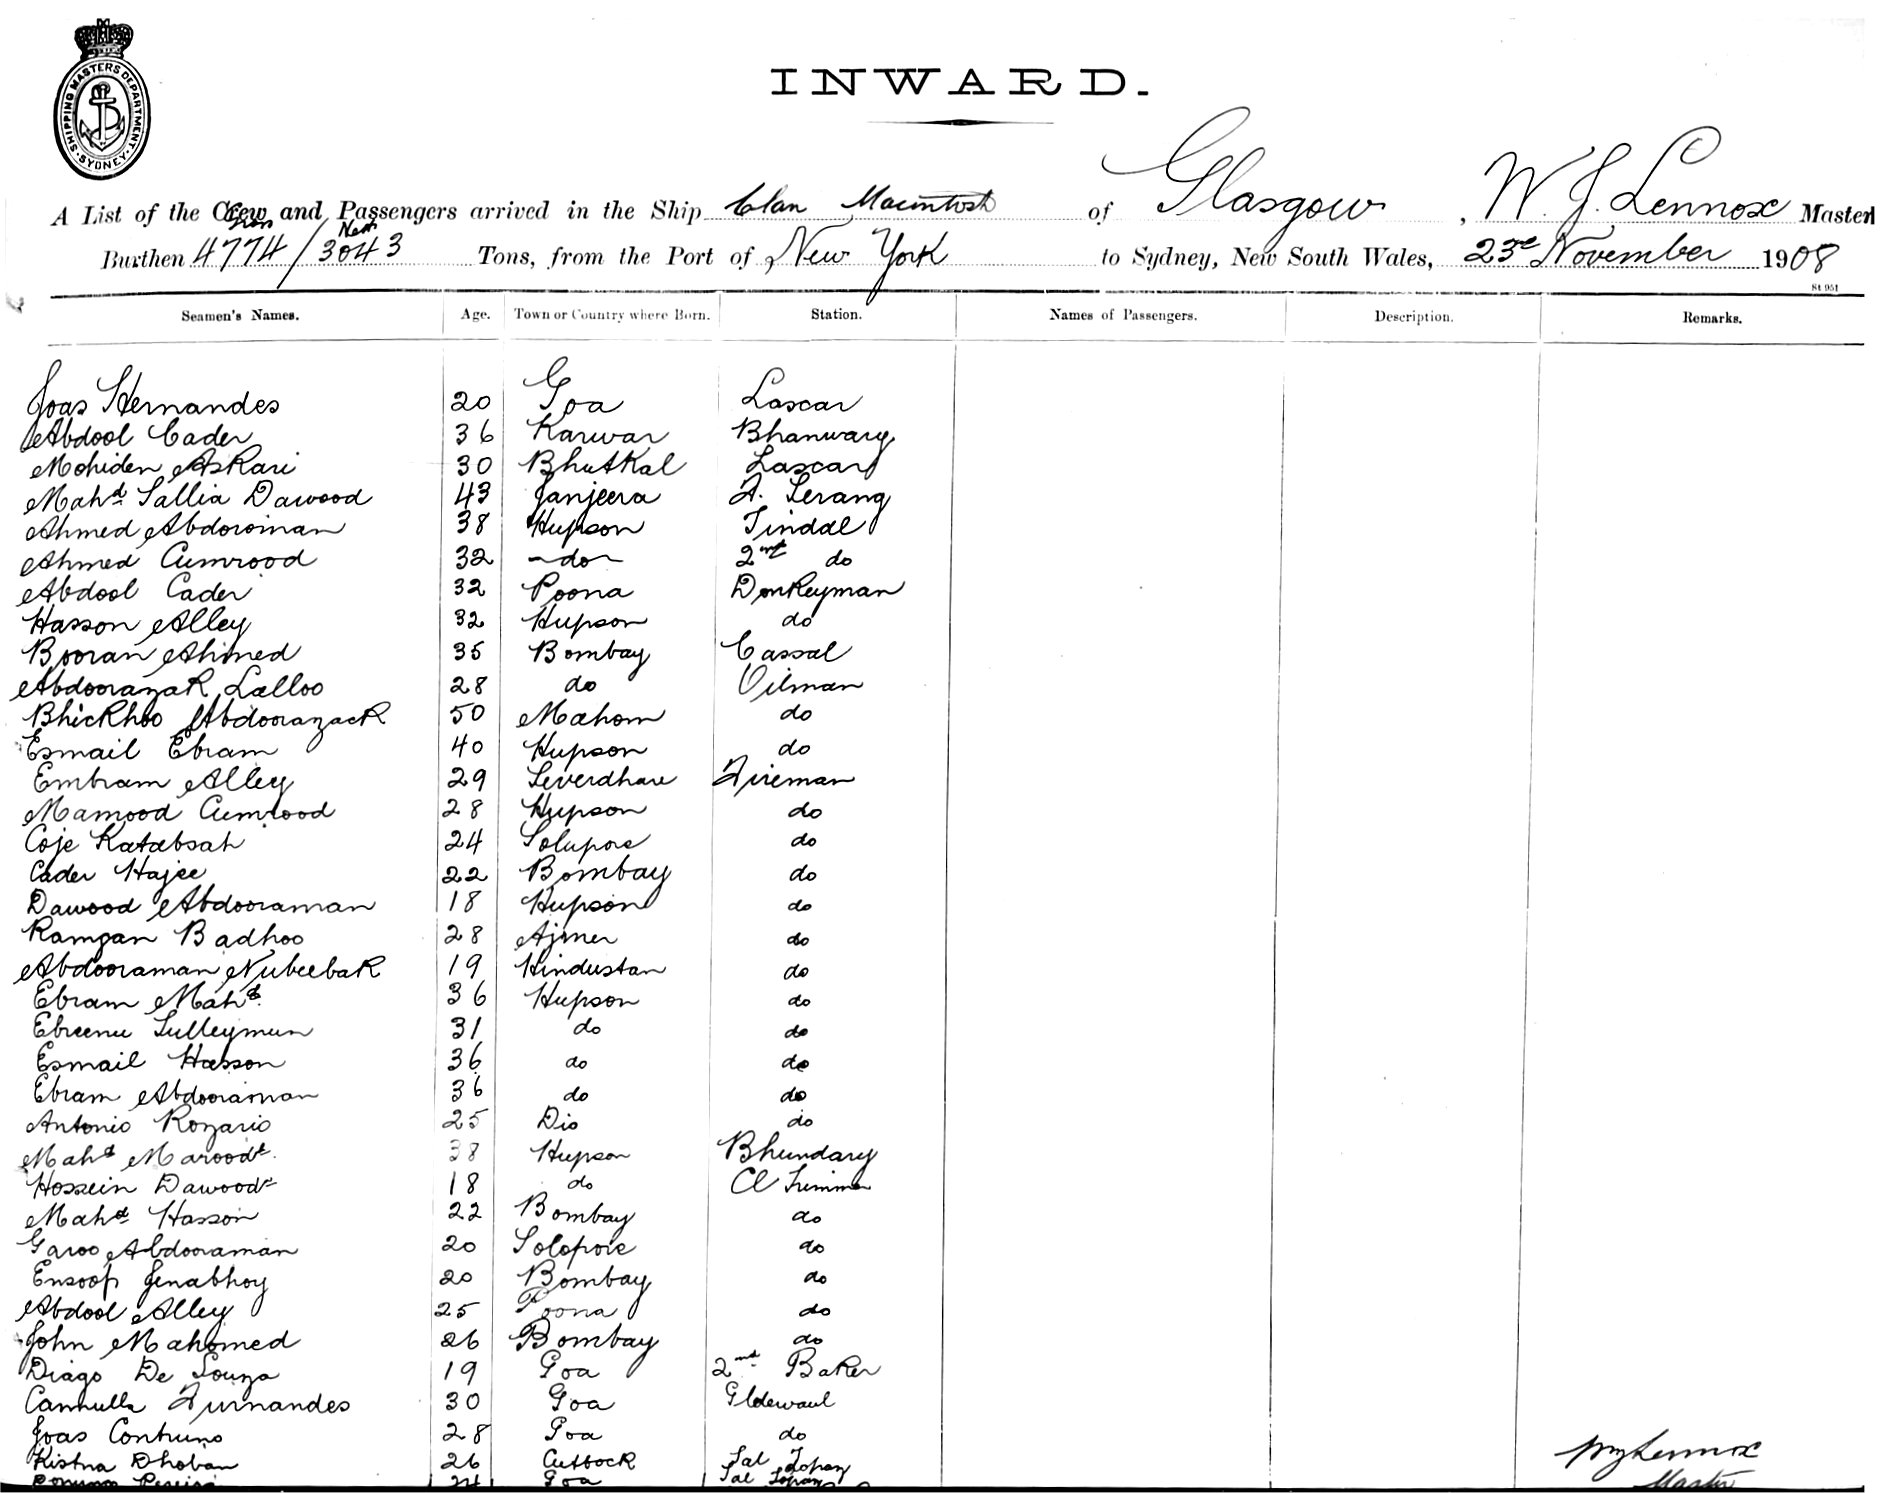 SHIPPING MASTERS DEPARTMENT
SYDNEY
INWARD.
A List of the Crew and Passengers arrived in the Ship Clan Macintosh of Glasgow, W. J. Lennox Master
Burthen Gross 4774 / Nett 3043 Tons, from the Port of New York to Sydney, New South Wales, 23rd November 1908
St 951
Seamen's Names. Age. Town or Country where Born. Station. Names of Passengers. Description. Remarks.
Joas Hernandes 20 Goa Lascar
Abdool Cader 36 Karwar Bhanwary
Mohiden Askari 30 Bhutkal Lascar
Mahd Sallia Dawood 43 Janjeera F. Serang
Ahmed Abdooriman 38 Hupson Tindal
Ahmed Cumrood 32 do 2nd do
Abdool Cader 32 Poona Donkeyman
Hasson Alley 32 Hupson do
Booran Ahmed 35 Bombay Cassal
Abdoorazak Lalloo 28 do Oilman
Bhickhoo Abdoorazack 50 Mahom do
Esmail Ebram 40 Hupson do
Embram Alley 29 Severdhare Fireman
Mamood Cumrood 28 Hupson do
Coje Katabsah 24 Solupore do
Cader Hajee 22 Bombay do
Dawood Abdooraman 18 Hupson do
Ramzan Badhoo 28 Ajmer do
Abdooraman Nubeebak 19 Hindustan do
Ebram Mahd. 36 Hupson do
Ebreenu Sulleymun 31 do do
Esmail Hasson 36 do do
Ebram Abdooraman 36 do do
Antonio Rozario 25 Dio do
Mahd Marood 38 Hupson Bhundary
Hossein Dawood 18 do Cl Trimmer
Mahd Hasson 22 Bombay do
Garoo Abdooraman 20 Solopore do
Ensoof Jenabhoy 20 Bombay do
Abdool Alley 25 Poona do
John Mahomed 26 Bombay do
Diago De Souza 19 Goa 2nd Baker
Furnandes 30 Goa
Joas 28 Goa do
Kistna Dhoban 26 Cuttock Sal Topaz
Pereira 24 Goa Sal Topaz
Wm J Lennox
Master